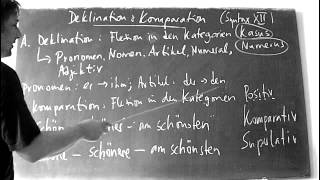 Deklination & Komparation (Syntax XII)
A. Deklination: Flexion in den Kategorien Kasus
Numerus
↳ Pronomen, Nomen, Artikel, Numeral,
Adjektiv
Pronomen: er → ihm; Artikel: des → den
Komparation: Flexion in den Kategorien
Positiv
am schönsten
Komparativ
— schönere — am schönsten
Supulativ